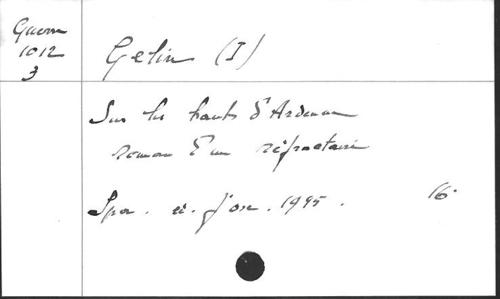 Guerre
1012
3
Gelin (I)
Sur les hauts d'Ardenne
roman d'un réfractaire
Spa. J'ose. 1945. 16°